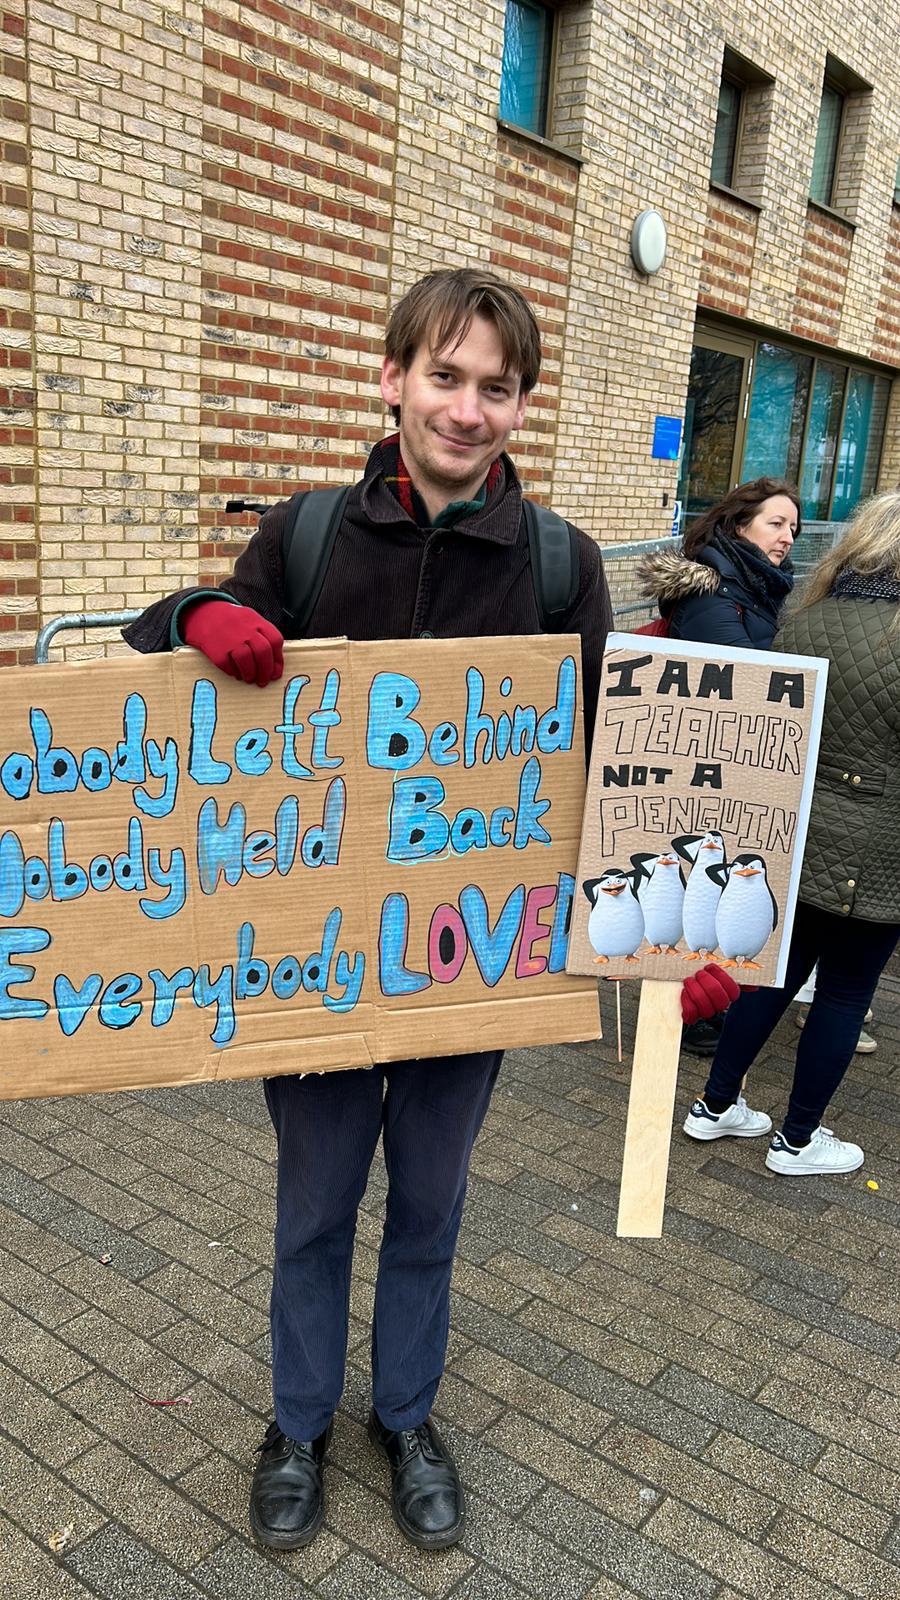 obody Left Behind
Nobody Held Back
Everybody LOVED
I AM A
TEACHER
NOT A
PENGUIN